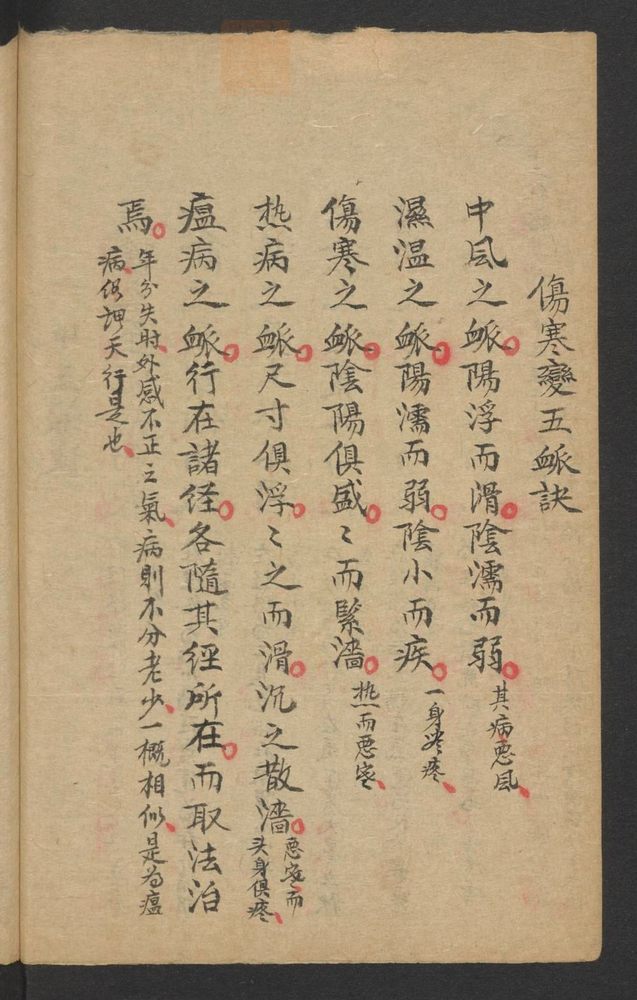 傷寒變五衇訣
中风之衇。陽浮而滑。陰濡而弱。其病悪风、
濕温之衇。陽濡而弱。陰小而疾。一身尽疼、
傷寒之衇。陰陽俱盛。〻而緊濇。热而悪寒、
热病之衇。尺寸俱浮。〻之而滑。沉之散濇。悪寒而
头身俱疼、
瘟病之衇。行在諸経。各隨其経所在。而取法治
焉。年分失时、外感不正之氣、病則不分老少、一概相似、是为瘟
病、俗呷天行是也、